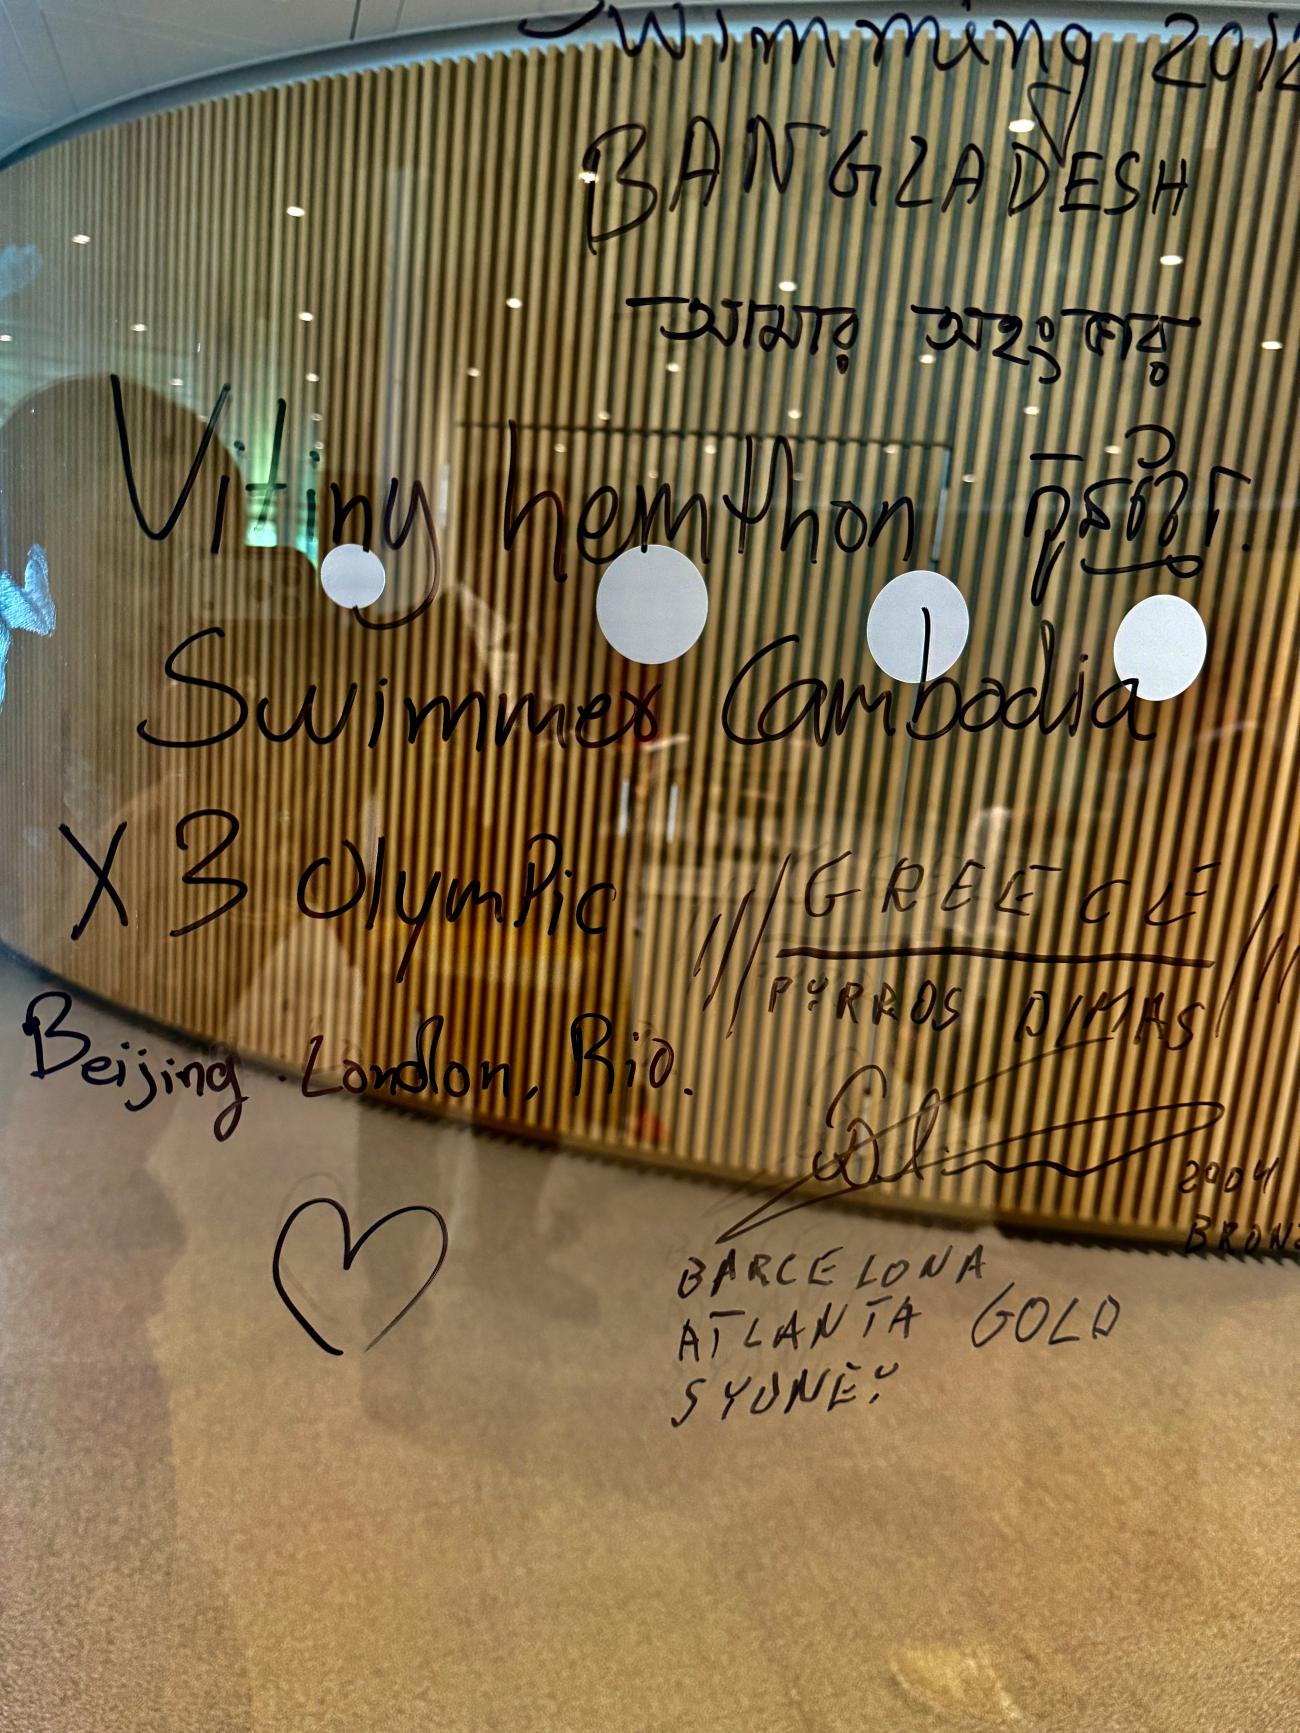 Swimming 2012
BANGLADESH
আমার অহংকার
Vitiny hemthon
Swimmer Cambodia
X 3 Olympic
Beijing. London, Rio.
GREECE
PYRROS DIMAS
2004
BRONZ
BARCELONA
ATLANTA GOLD
SYDNEY